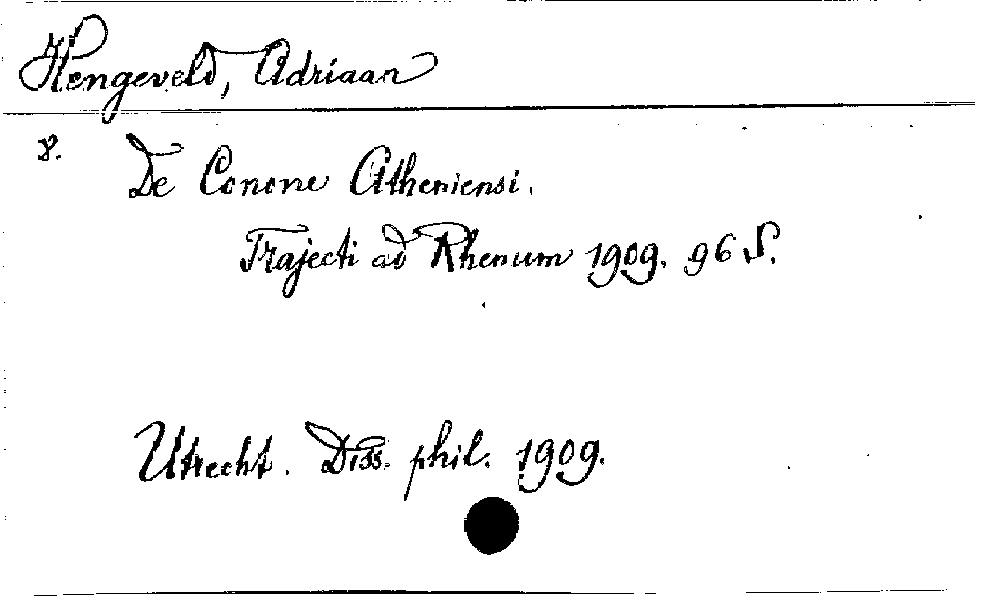 Hengeveld, Adriaan
8.
De Conone Atheniensi.
Trajecti ad Rhenum 1909. 96 S.
Utrecht. Diss. phil. 1909.